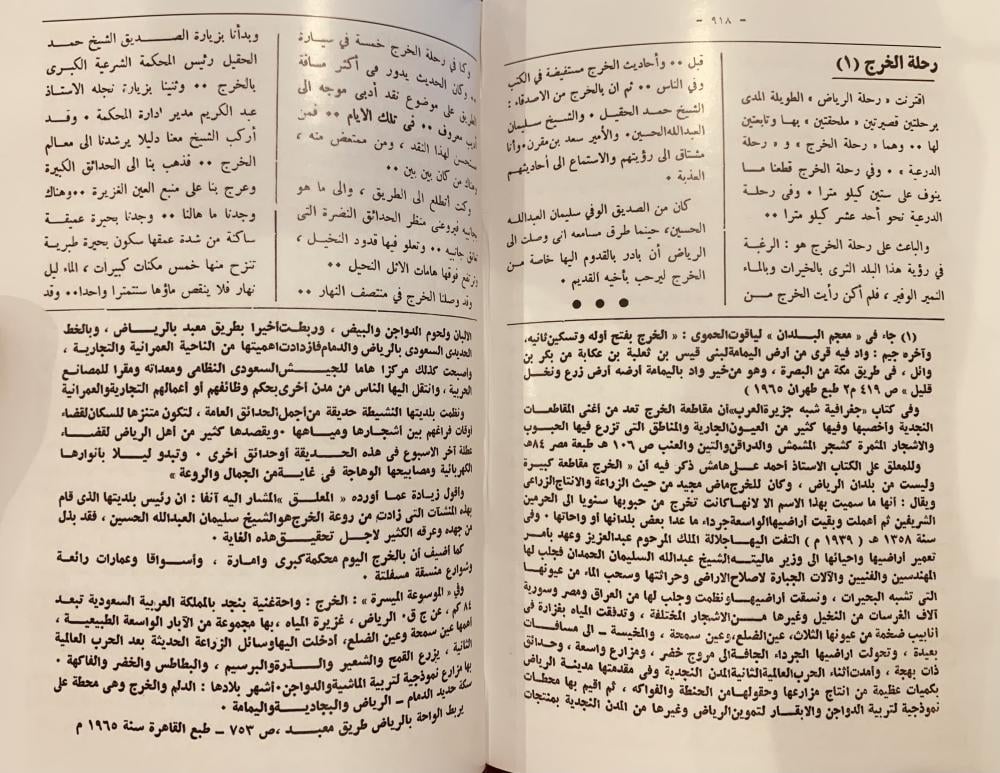 - ٩١٨ -
رحلة الخرج (١)
اقترنت « رحلة الرياض » الطويلة المدى
برحلتين قصيرتين « ملحقتين » بها وتابعتين
لها ٠٠ وهما « رحلة الخرج » و « رحلة
الدرعية » ٠ وفي رحلة الخرج قطعنا ما
ينوف على ستين كيلو مترا ٠ وفي رحلة
الدرعية نحو أحد عشر كيلو مترا ٠٠
والباعث على رحلة الخرج هو : الرغبة
في رؤية هذا البلد الثرى بالخيرات وبالماء
النمير الوفير ، فلم أكن رأيت الخرج من
قبل ٠٠ وأحاديث الخرج مستفيضة في الكتب
وفي الناس ٠٠ ثم ان بالخرج من الاصدقاء :
الشيخ حمد الحقيل ٠ والشيخ سليمان
العبدالله الحسين ٠ والأمير سعد بن مقرن ٠ وأنا
مشتاق الى رؤيتهم والاستماع الى أحاديثهم
العذبة ٠
كان من الصديق الوفي سليمان العبدالله
الحسين، حينما طرق مسامعه انى وصلت الى
الرياض أن بادر بالقدوم اليها خاصة من
الخرج ليرحب بأخيه القديم ٠
● ● ●
(١) جاء فى « معجم البلدان » لياقوت الحموى : « الخرج بفتح أوله وتسكين ثانيه،
وآخره جيم : واد فيه قرى من أرض اليمامة لبنى قيس بن ثعلبة بن عكابة من بكر بن
وائل ، في طريق مكة من البصرة ، وهو من خير واد باليمامة أرضه أرض زرع ونخل
قليل » ص ٤١٩ م٢ طبع طهران ١٩٦٥ )
وفى كتاب «جغرافية شبه جزيرة العرب» أن مقاطعة الخرج تعد من أغنى المقاطعات
النجدية وأخصبها وفيها كثير من العيون الجارية والمناطق التى تزرع فيها الحبوب
والاشجار المثمرة كشجر المشمش والدراقن والتين والعنب ص ١٠٦ طبعة مصر ٨٤هـ
وللمعلق على الكتاب الاستاذ أحمد على هامش ذكر فيه أن « الخرج مقاطعة كبيرة
وليست من بلدان الرياض ، وكان للخرج ماض مجيد من حيث الزراعة والانتاج الزراعى
ويقال : أنها ما سميت بهذا الاسم الا لانها كانت تخرج من حبوبها سنويا الى الحرمين
الشريفين ثم أهملت وبقيت أراضيها الواسعة جرداء ما عدا بعض بلدانها أو واحاتها ٠ وفى
سنة ١٣٥٨ هـ ( ١٩٣٩ م ) التفت اليها جلالة الملك المرحوم عبدالعزيز وعهد بأمر
تعمير أراضيها واحيائها الى وزير ماليته الشيخ عبدالله السليمان الحمدان فجلب لها
المهندسين والفنيين والآلات الجبارة لاصلاح الاراضى وحراثتها وسحب الماء من عيونها
التى تشبه البحيرات ، ونسقت أراضيها ونظمت وجلب لها من العراق ومصر وسورية
آلاف الغرسات من النخيل وغيرها من الاشجار المختلفة ، وتدفقت المياه بغزارة فى
أنابيب ضخمة من عيونها الثلاث، عين الضلع، وعين سمحة ، والمخيسة ــ الى مسافات
بعيدة ، وتحولت أراضيها الجرداء الجافة الى مروج خضر ، ومزارع واسعة ، وحدائق
ذات بهجة ، وأمدت أثناء الحرب العالمية الثانية المدن النجدية وفى مقدمتها مدينة الرياض
بكميات عظيمة من انتاج مزارعها وحقولها من الحنطة والفواكه ، ثم اقيم بها محطات
نموذجية لتربية الدواجن والابقار لتموين الرياض وغيرها من المدن النجدية بمنتجات
وكنا في رحلة الخرج خمسة في سيارة
٠٠ وكان الحديث يدور فى أكثر مسافة
الطريق على موضوع نقد أدبى موجه الى
أديب معروف ٠٠ فى تلك الأيام ٠٠ فمن
مستحسن لهذا النقد ، ومن ممتعض منه ،
وهناك من كان بين بين ٠٠
وكنت أتطلع الى الطريق ، والى ما هو
بجانبيه فيروعنى منظر الحدائق النضرة التى
جانبيه ٠٠ وتعلو فيها قدود النخيل ،
وترتفع فوقها هامات الاثل النحيل ٠٠
وقد وصلنا الخرج في منتصف النهار ٠٠
وبدأنا بزيارة الصديق الشيخ حمد
الحقيل رئيس المحكمة الشرعية الكبرى
بالخرج ٠٠ وثنينا بزيارة نجله الاستاذ
عبد الكريم مدير ادارة المحكمة ٠ وقد
أركب الشيخ معنا دليلا يرشدنا الى معالم
الخرج ٠٠ فذهب بنا الى الحدائق الكبيرة
وعرج بنا على منبع العين الغزيرة ٠٠ وهناك
وجدنا ما هالنا ٠٠ وجدنا بحيرة عميقة
ساكنة من شدة عمقها سكون بحيرة طبرية
تنزح منها خمس مكنات كبيرات ، الماء ليل
نهار فلا ينقص ماؤها سنتمترا واحدا ٠٠ وقد
الالبان ولحوم الدواجن والبيض ، وربطت أخيرا بطريق معبد بالرياض ، وبالخط
الحديدى السعودى بالرياض والدمام فازدادت أهميتها من الناحية العمرانية والتجارية ،
وأصبحت كذلك مركزا هاما للجيش السعودى النظامى ومعداته ومقرا للمصانع
الحربية ، وانتقل اليها الناس من مدن أخرى بحكم وظائفهم أو أعمالهم التجارية والعمرانية
ونظمت بلديتها النشيطة حديقة من أجمل الحدائق العامة ، لتكون متنزها للسكان لقضاء
أوقات فراغهم بين أشجارها ومياهها ٠ ويقصدها كثير من أهل الرياض لقضاء
عطلة آخر الاسبوع فى هذه الحديقة أو حدائق أخرى ٠ وتبدو ليلا بأنوارها
الكهربائية ومصابيحها الوهاجة فى غاية من الجمال والروعة »
وأقول زيادة عما أورده « المعلق » المشار اليه آنفا : ان رئيس بلديتها الذى قام
بهذه المنشآت التى زادت من روعة الخرج هو الشيخ سليمان العبدالله الحسين ، فقد بذل
من جهده وعرقه الكثير لاجل تحقيق هذه الغاية ٠
كما أضيف أن بالخرج اليوم محكمة كبرى وامارة ، وأسواقا وعمارات رائعة
وشوارع منسقة مسفلتة ٠
وفى « الموسوعة الميسرة » : الخرج : واحة غنية بنجد بالمملكة العربية السعودية تبعد
٨٤ كم ، عن ج ق ٠ الرياض ، غزيرة المياه ، بها مجموعة من الآبار الواسعة الطبيعية ،
أهمها عين سمحة وعين الضلع، أدخلت اليها وسائل الزراعة الحديثة بعد الحرب العالمية
الثانية ، يزرع القمح والشعير والذرة والبرسيم ، والبطاطس والخضر والفاكهة ٠
بها مزارع نموذجية لتربية الماشية والدواجن ٠ أشهر بلادها : الدلم والخرج وهى محطة على
سكة حديد الدمام ــ الرياض والبجادية واليمامة ٠
يربط الواحة بالرياض طريق معبد ، ص ٧٥٣ ــ طبع القاهرة سنة ١٩٦٥ م